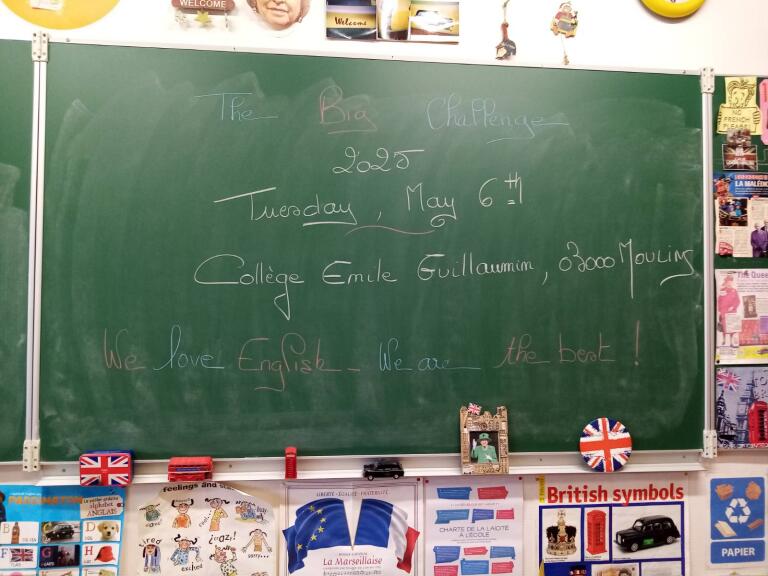 WELCOME
Welcome
The Big Challenge
2025
Tuesday, May 6th
Collège Emile Guillaumin, 03000 Moulins
We love English. We are the best!
NO FRENCH PLEASE!
LA MALÉDI
The Quee
PADDINGTON
alphabet
ANGLAIS
B
D
F
G
H
feelings and
LIBERTÉ • ÉGALITÉ • FRATERNITÉ
La Marseillaise
CHARTE DE LA LAÏCITÉ
À L'ÉCOLE
British symbols
PAPIER